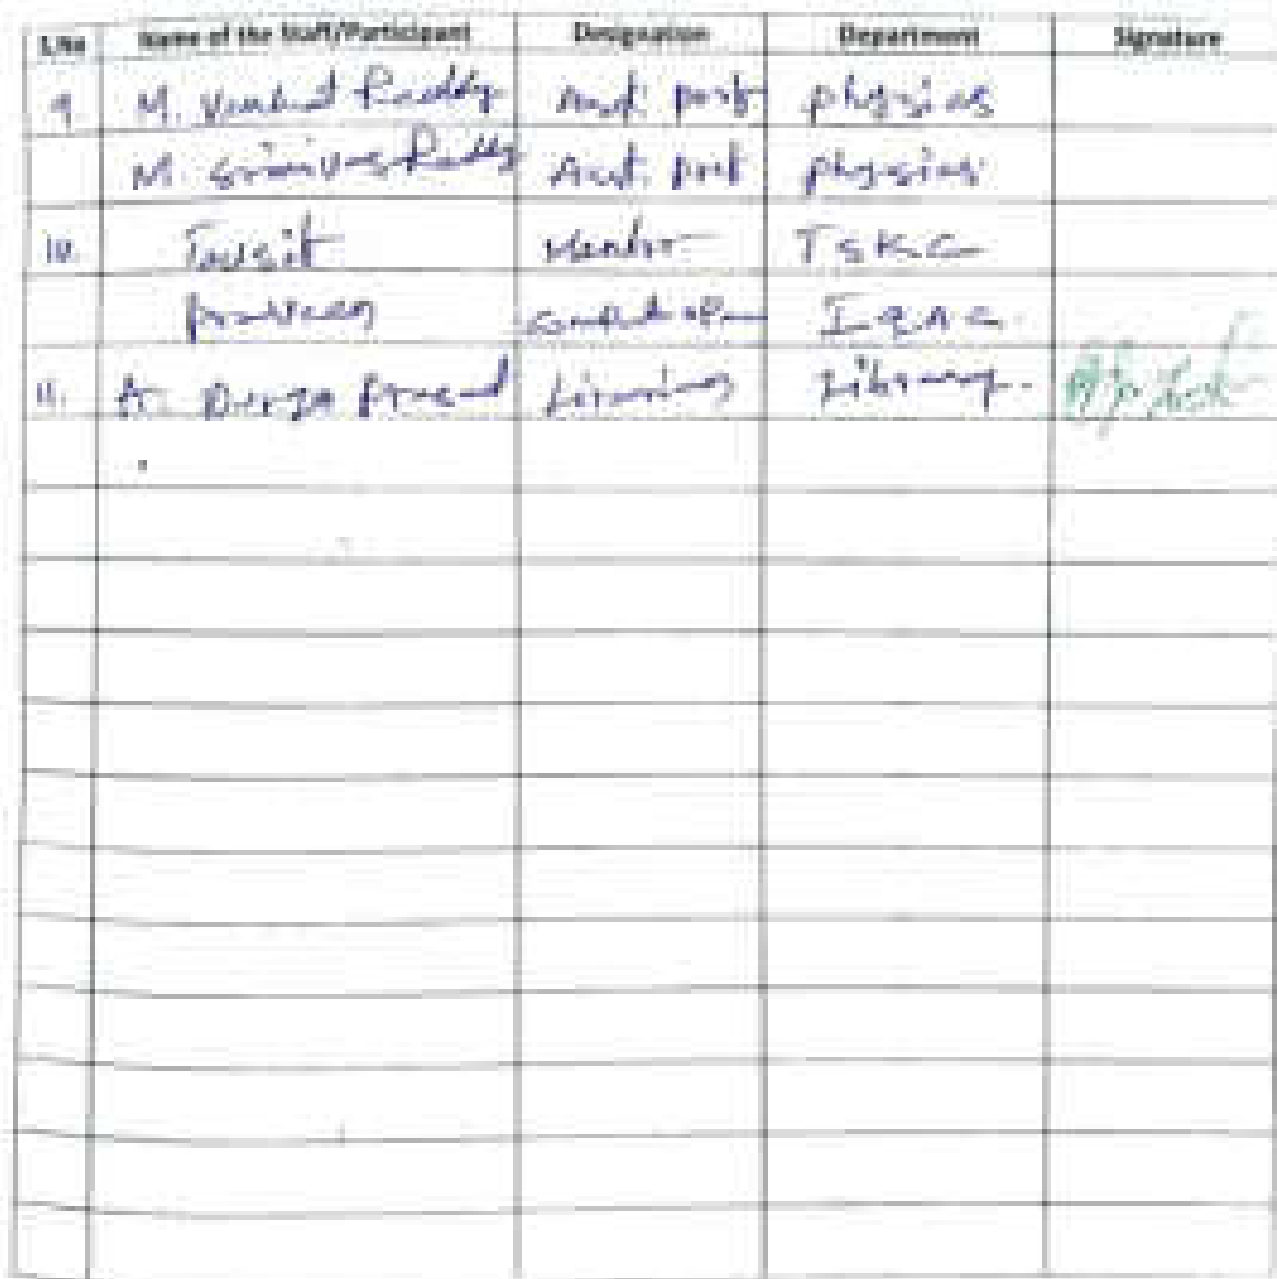 S.No Name of the Staff/Participant Designation Department Signature
9 M. Venkat Reddy Asst. prof physics
M. Srinivas Reddy Asst. prof physics
10. Tousif Mentor TSKC
praveen IQAC
11. A. Durga Prasad Library